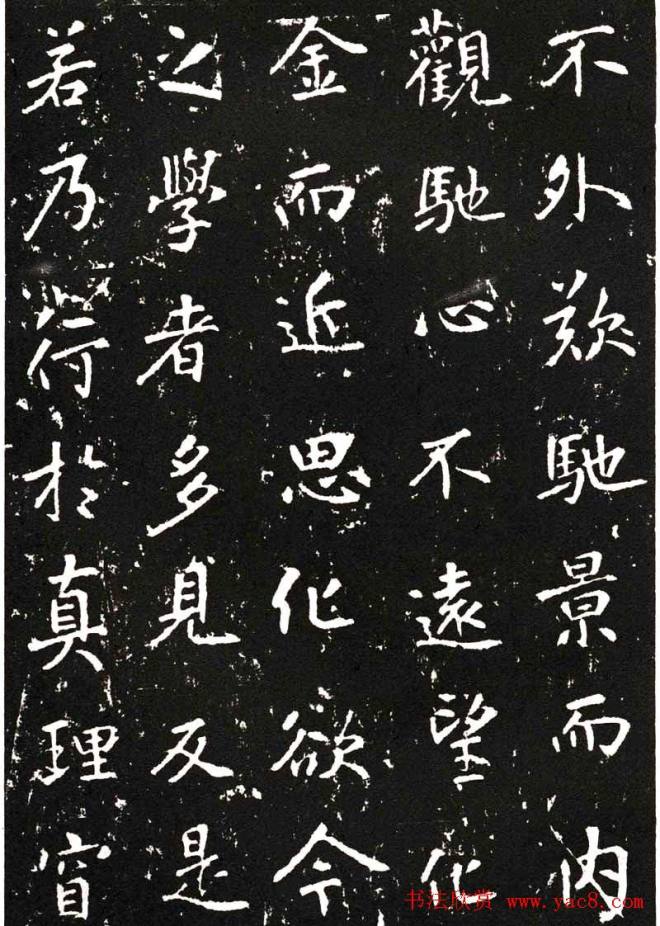 不外馳景而內
觀馳心不遠望化
金而近思化欲今
之學者多見反是
若乃於真理窅
书法欣赏 www.yac8.com